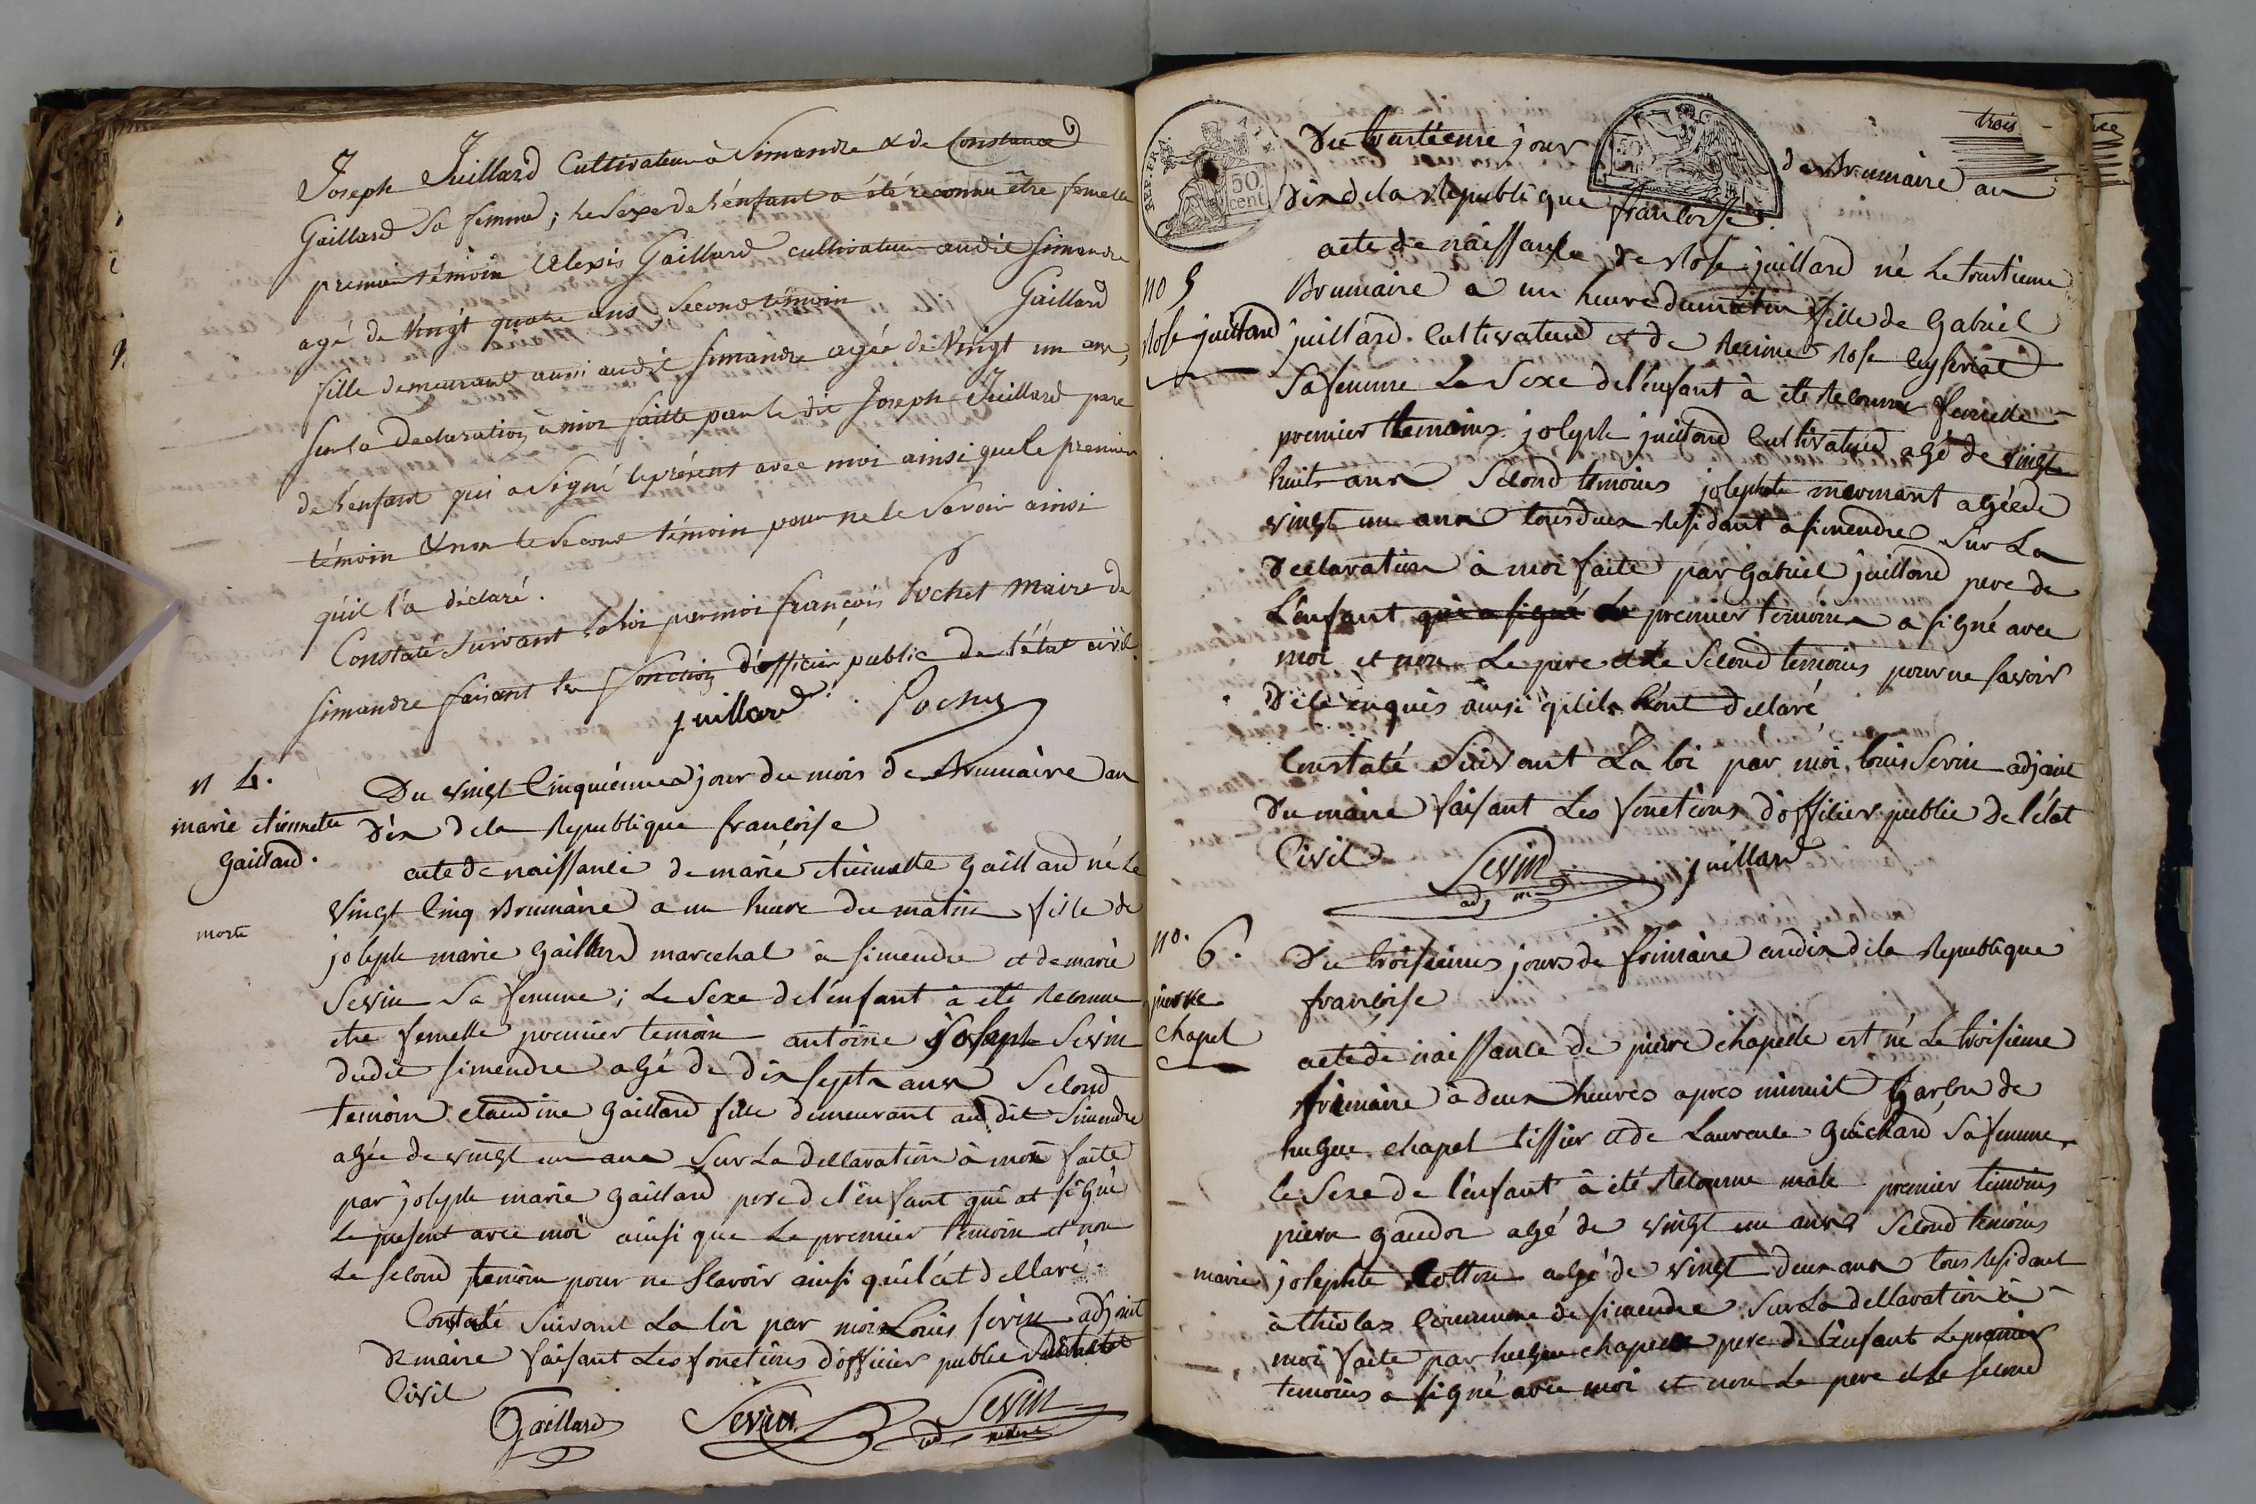 Joseph Juillard Cultivateur à Simandre & de Constance
Gaillard Sa femme ; le Sexe de l'énfant a été reconnu être femelle
premier témoin Alexis Gaillard cultivateur audit Simandre
agé de Vingt quatre ans Second témoin Gaillard
fille demeurant aussi audit Simandre agée de Vingt un ans,
Sur la declaration à moi faitte par le dit Joseph Juillard pere
de l'enfant qui a signé le présent avec moi ainsi que le premier
témoin & non le Second témoin pour ne le Savoir ainsi
qu'il l'a déclaré.
Constaté Suivant la loi par moi françois Pochet Maire de
Simandre faisant les fonction d'officier public de l'état civil.
juillard Pochet
n 4.
marie etiennette
Gaillard.
morte
Du vingt Cinquiémme jour du mois de Brumaire an
Dix de la Republique francoise
acte de naissance de marie etiennette Gaillard né le
Vingt Cinq Brumaire a un heure du matin fille de
joseph marie Gaillard marechal à simendre et de marie
Sevin Sa femme ; Le Sexe de l'enfant à eté Reconnue
etre femelle premier temoin antoine joseph Sevin
dudit simendre agé de dix sept ans Second
temoin claudine Gaillard fille demeurant au dit Simendre
agée de vingt un ans Sur La declaration à moi faite
par joseph marie Gaillard pere de l'enfant qui at signé
Le present avec moi ainsi que Le premier temoin et non
Le second temoin pour ne Scavoir ainsi qu'il at declaré.
Constaté Suivant La loi par moi Louis Sevin adjoint
De maire faisant Les fonctions d'officier public de l'état
Civil
Gaillard Sevin Sevin
adj maire
trois
REP. FRA.
50 cent
50
Du trentieme jour de Brumaire an
Dix de la Republique francoise.
no 5
Rose juillard
acte de naissance de Rose juillard né Le trentieme
Brumaire a un heure du matin fille de Gabriel
juillard Cultivateur et de Reine Rose Leyseriat
Sa femme Le Sexe de l'enfant à eté Reconnu femelle
premier temoins joseph juillard Cultivateur agé de vingt
huit ans Second temoins josephte mermant agée de
vingt un ans tous deux Residant a simendre Sur La
Declaration à moi faite par Gabriel juillard pere de
L'enfant qui a signé Le premier temoin a signé avec
moi et non Le pere et le Second temoins pour ne Savoir
De ce enquis ainsi qu'ils l'ont declaré
Constaté Suivant La loi par moi Louis Sevin adjoint
Du maire faisant Les fonctions d'officier public de l'état
Civil
Sevin juillard
adj m
no. 6.
pierre
chapel
Du troisiemes jours de frimaire an dix de la Republique
françoise
acte de naissance de pierre chapelle est né Le troisieme
frimaire à deux heures apres minuit Garcon de
hugue chapel tissier et de Laurence Guichard Sa femme
Le Sexe de l'enfant à eté Reconnu male premier temoins
pierre Gaudoz agé de vingt un ans Second temoins
marie josephte Cottin agé de vingt deux ans tous Residant
à thiolas Commune de simendre Sur La declaration à
moi faite par hugue chapelle pere de l'enfant Le premier
temoins a signé avec moi et non Le pere et le second